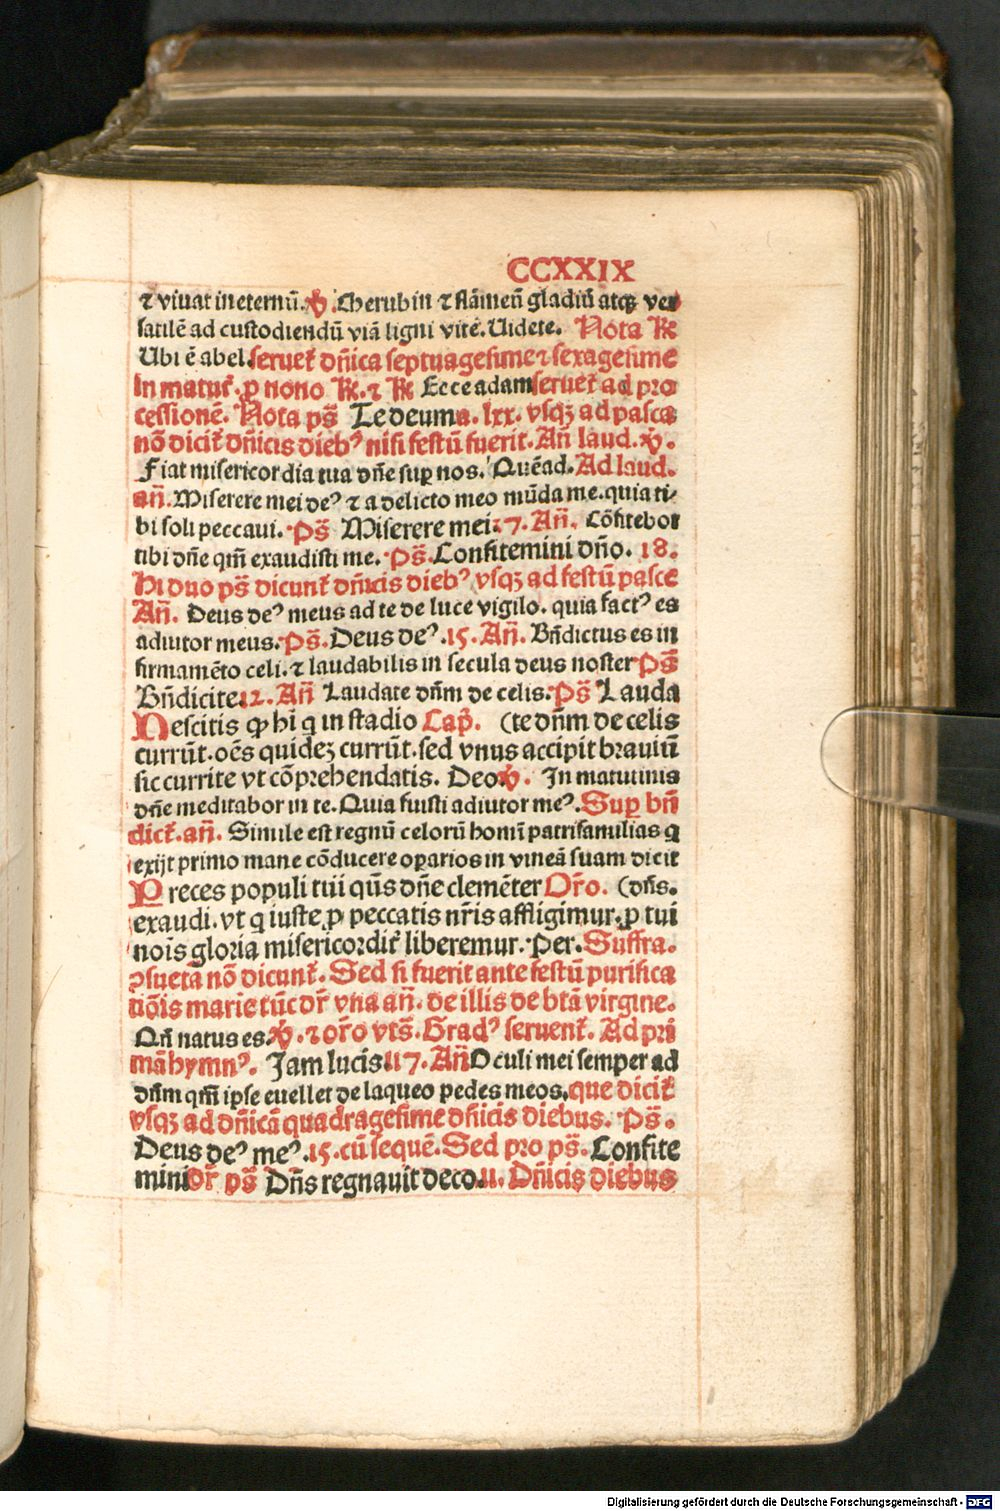 CCXXIX
⁊ viuat in eternū. ꝟ. Cherubin ⁊ flāmeñ gladiū atqꝫ ver
satilē ad custodiendū viā ligni vite. Uidete. Nota ℞
Ubi ē abel. seruet᷑ dñica septuagesime ⁊ sexagesime
In matut᷑. ꝑ nono ℞. ⁊ ℞ Ecce adam seruet᷑ ad pro
cessionē. Nota ps̄ Te deum a. lxx. vsqꝫ ad pasca
nō dicit᷑ dñicis diebꝰ nisi festū fuerit. Añ laud. ꝟ.
Fiat misericordia tua dñe suꝑ nos. Quēad. Ad laud.
añ. Miserere mei deꝰ ⁊ a delicto meo mūda me. quia ti⸗
bi soli peccaui. Ps̄ Miserere mei. 17. Añ. Cōfitebor
tibi dñe qm̄ exaudisti me. Ps̄. Confitemini dño. 18.
Hi duo ps̄ dicunt᷑ dñicis diebꝰ vsqꝫ ad festū pasce
Añ. Deus deꝰ meus ad te de luce vigilo. quia factꝰ es
adiutor meus. Ps̄. Deus deꝰ. 15. Añ. Bñdictus es in
firmamēto celi. ⁊ laudabilis in secula deus noster Ps̄
Bñdicite. 12. Añ Laudate dñm de celis. Ps̄ Lauda
Nescitis ꝙ hi q in stadio Cap̄. (te dñm de celis
currūt. oēs quideꝫ currūt. sed vnus accipit brauiū
sic currite vt cōprehendatis. Deo. ꝟ. In matutinis
dñe meditabor in te. Quia fuisti adiutor meꝰ. Suꝑ bñ
dict᷑. añ. Simile est regnū celorū homī patrifamilias q
exijt primo mane cōducere oꝑarios in vineā suam dicit
Preces populi tui qūs dñe clemēter Or̄o. (dñs.
exaudi. vt q iuste ꝓ peccatis nr̄is affligimur. ꝓ tui
nois̄ gloria misericordit᷑ liberemur. Per. Suffra.
ꝯsueta nō dicunt᷑. Sed si fuerit ante festū purifica
tiōis marie tūc dr̄ vna añ. de illis de bta̅ virgine.
Qñ natus es. ꝟ. ⁊ or̄o vts̄. Gradꝰ seruent᷑. Ad pri
mā hymnꝰ. Jam lucis. 117. Añ Oculi mei semper ad
dñm qm̄ ipse euellet de laqueo pedes meos. que dicit᷑
vsqꝫ ad dñicā quadragesime dñicis diebus. Ps̄.
Deus deꝰ meꝰ. 15. cū sequē. Sed pro ps̄. Confite
mini dr̄ ps̄ Dñs regnauit deco. 11. Dñicis diebus
Digitalisierung gefördert durch die Deutsche Forschungsgemeinschaft - DFG